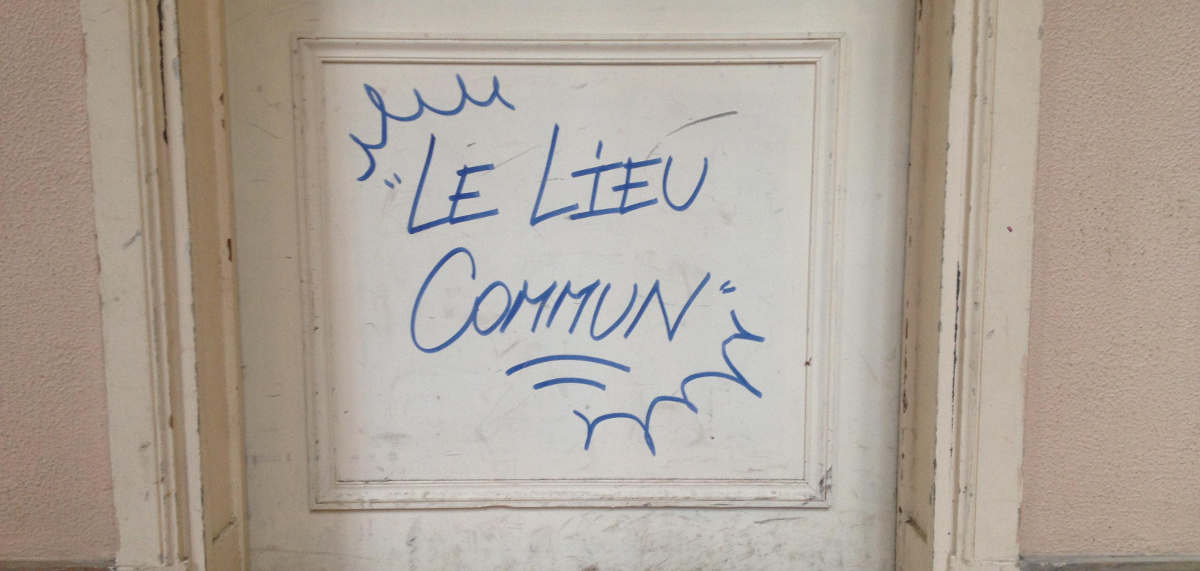 "LE LIEU
COMMUN"